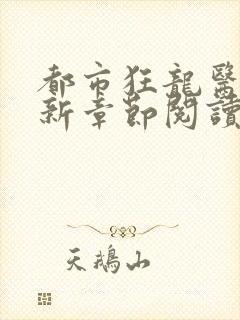 都市狂龍醫
新章節閱讀
天鵝山